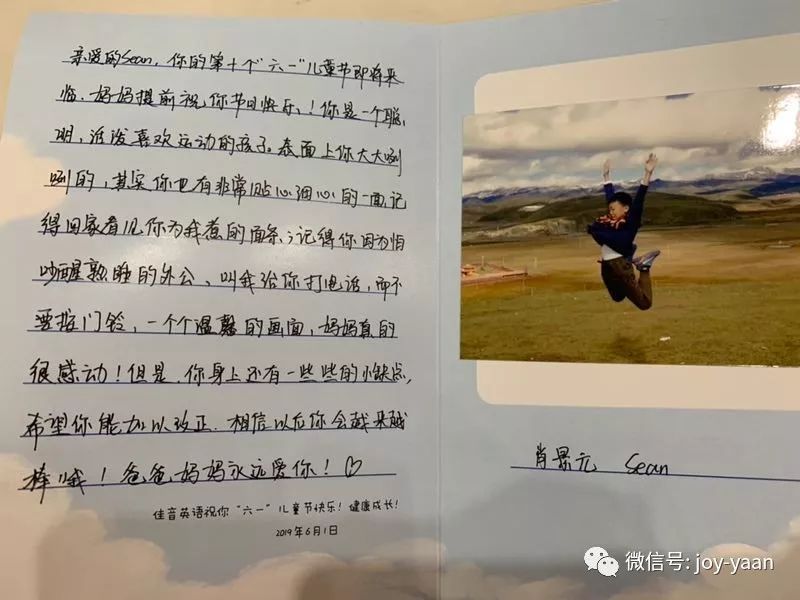 亲爱的Sean，你的第十个"六一"儿童节即将来
临，妈妈提前祝你节日快乐！你是一个聪
明，活泼喜欢运动的孩子。表面上你大大咧
咧的，其实你也有非常贴心细心的一面，记
得回家看见你为我煮的面条；记得你因为怕
吵醒熟睡的外公、叫我给你打电话，而不
要按门铃，一个个温馨的画面，妈妈真的
很感动！但是，你身上还有一些些的小缺点，
希望你能加以改正．相信以后你会越来越
棒哦！爸爸妈妈永远爱你！♡
佳音英语祝你"六一"儿童节快乐！健康成长！
2019年6月1日
肖景元 Sean
微信号: joy-yaan